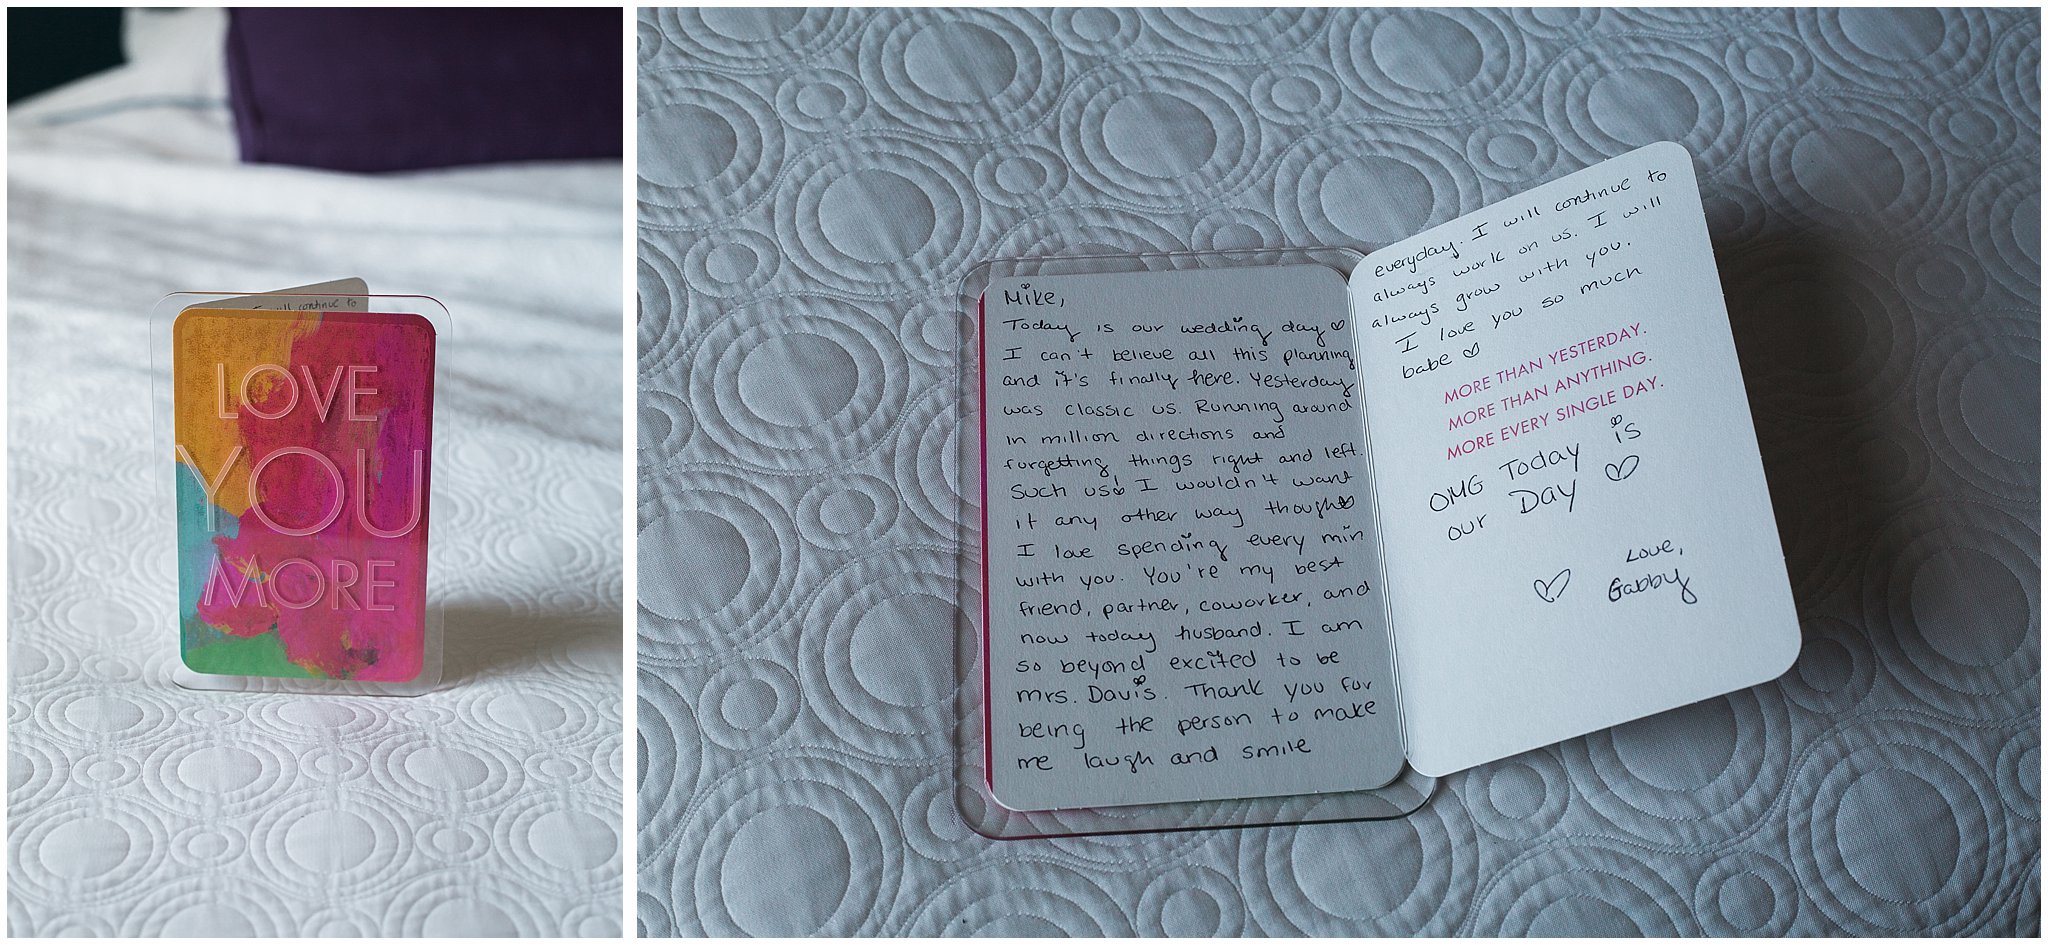 LOVE
YOU
MORE
I will continue to
Mike,
Today is our wedding day ♡
I can't believe all this planning
and it's finally here. Yesterday
was classic us. Running around
in million directions and
forgetting things right and left.
Such us! I wouldn't want
it any other way though
I love spending every min
with you. You're my best
friend, partner, coworker, and
now today husband. I am
so beyond excited to be
mrs. Davis. Thank you for
being the person to make
me laugh and smile
everyday. I will continue to
always work on us. I will
always grow with you.
I love you so much
babe ♡
MORE THAN YESTERDAY.
MORE THAN ANYTHING.
MORE EVERY SINGLE DAY.
OMG Today is
our Day ♡
♡ Love,
Gabby